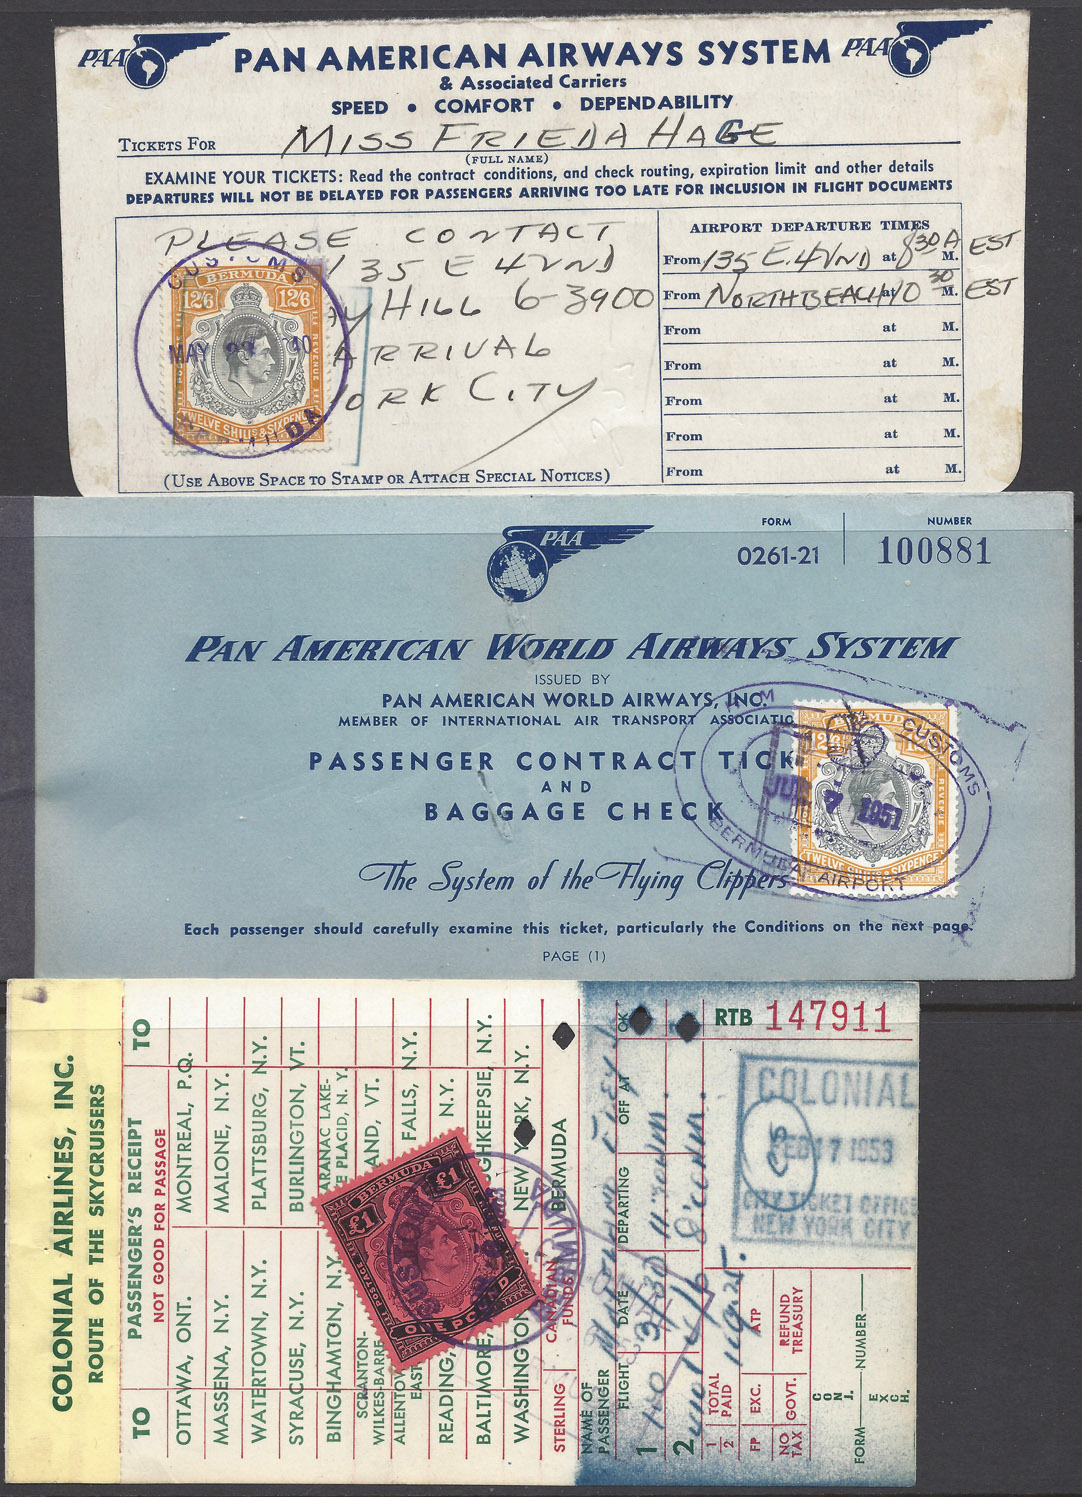 PAA PAN AMERICAN AIRWAYS SYSTEM PAA
& Associated Carriers
SPEED • COMFORT • DEPENDABILITY
TICKETS FOR MISS FRIEDA HAGE
(FULL NAME)
EXAMINE YOUR TICKETS: Read the contract conditions, and check routing, expiration limit and other details
DEPARTURES WILL NOT BE DELAYED FOR PASSENGERS ARRIVING TOO LATE FOR INCLUSION IN FLIGHT DOCUMENTS
PLEASE CONTACT
135 E 42ND
HILL 6-3900
ARRIVAL
YORK CITY
(USE ABOVE SPACE TO STAMP OR ATTACH SPECIAL NOTICES)
AIRPORT DEPARTURE TIMES
From 135 E. 42ND at 8 30 A M. EST
From NORTH BEACH at 10 30 M. EST
From at M.
From at M.
From at M.
From at M.
From at M.
CUSTOMS
BERMUDA
12/6 12/6
MAY 40
REVENUE
TWELVE SHILLS & SIXPENCE
PAA
FORM
0261-21
NUMBER
100881
PAN AMERICAN WORLD AIRWAYS SYSTEM
ISSUED BY
PAN AMERICAN WORLD AIRWAYS, INC.
MEMBER OF INTERNATIONAL AIR TRANSPORT ASSOCIATIO
PASSENGER CONTRACT TICK
AND
BAGGAGE CHECK
The System of the Flying Clippers
Each passenger should carefully examine this ticket, particularly the Conditions on the next page.
PAGE (1)
H M CUSTOMS
BERMUDA
12/6
1951
REVENUE
TWELVE SHILLS & SIXPENCE
BERMUDA AIRPORT
COLONIAL AIRLINES, INC.
ROUTE OF THE SKYCRUISERS
TO PASSENGER'S RECEIPT TO
NOT GOOD FOR PASSAGE
OTTAWA, ONT. MONTREAL, P.Q.
MASSENA, N.Y. MALONE, N.Y.
WATERTOWN, N.Y. PLATTSBURG, N.Y.
SYRACUSE, N.Y. BURLINGTON, VT.
BINGHAMTON, N.Y. SARANAC LAKE-
LAKE PLACID, N.Y.
SCRANTON-
WILKES-BARRE
AND, VT.
ALLENTOWN
EAST
FALLS, N.Y.
READING, N.Y.
BALTIMORE, GHKEEPSIE, N.Y.
WASHINGTON NEW YORK, N.Y.
STERLING CANADIAN FUNDS BERMUDA
BERMUDA
£1 £1
POSTAGE
ONE POUND
CUSTOMS
BERMUDA
NAME OF
PASSENGER
FLIGHT DATE DEPARTING OFF AT OK
1
2
TOTAL
PAID
1/2
FP EXC. ATP
NO
TAX GOVT. REFUND
TREASURY
CONJ.
FORM NUMBER
EXCH.
RTB 147911
COLONIAL
FEB 17 1953
CITY TICKET OFFICE
NEW YORK CITY